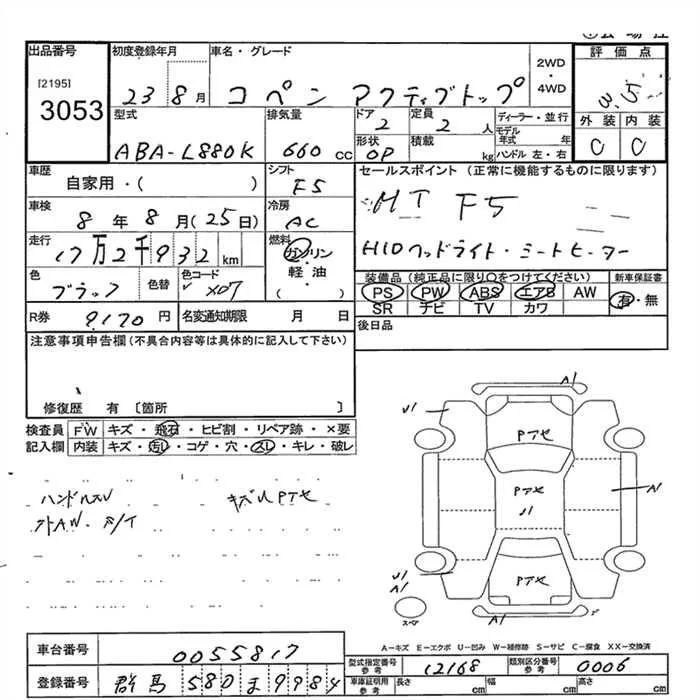 出品番号 初度登録年月 車名・グレード 評価点
[2195]
3053
23 8月 コペン アクティブトップ 2WD・4WD 3.5
型式 排気量 ドア 定員 ディーラー・並行 外装 内装
ABA-L880K 660cc 2 2人 モデル年式 年 C C
形状 積載
OP kg ハンドル 左・右
車歴 シフト セールスポイント (正常に機能するものに限ります)
自家用・( ) F5 MT F5
車検 冷房
8年8月(25日) AC
走行 燃料 HIDヘッドライト・シートヒーター
17万2千932km ガソリン・軽油・( )
色 色替 色コード 装備品(純正品に限り○をつけてください) 新車保証書
ブラック X07 PS PW ABS エアB AW 有・無
SR チビ TV カワ
R券 9170円 名変通知期限 月 日 後日品
注意事項申告欄(不具合内容等は具体的に記入して下さい)
修復歴 有 〔箇所 〕
検査員 FW キズ・飛石・ヒビ割・リペア跡・×要
記入欄 内装 キズ・汚レ・コゲ・穴・スレ・キレ・破レ
ハンドルスレ キズU PTセ
外AW
A1
U1
PTセ
PTセ
U1
A1
U1
A1
PTセ
A1
スペア
A-キズ E-エクボ U-凹み W-補修跡 S-サビ C-腐食 XX-交換済
車台番号 0055817
型式指定番号 参考 12168 類別区分番号 参考 0006
登録番号 群馬 580 ま 9984
車庫証明用 参考 長さ cm 幅 cm 高さ cm